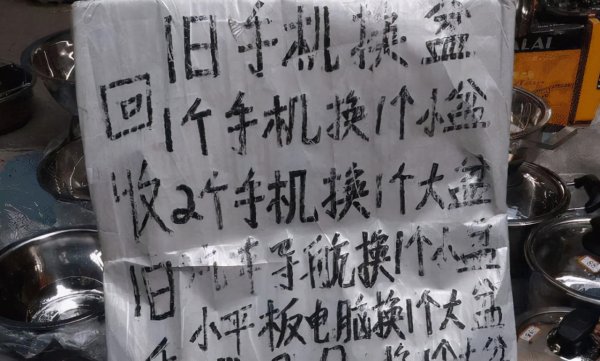 旧手机换盆
回收旧手
1个手机换1个小盆
2个手机换1个大盆
汽车导航换1个小盆
小平板电脑换1个大盆
ALAI